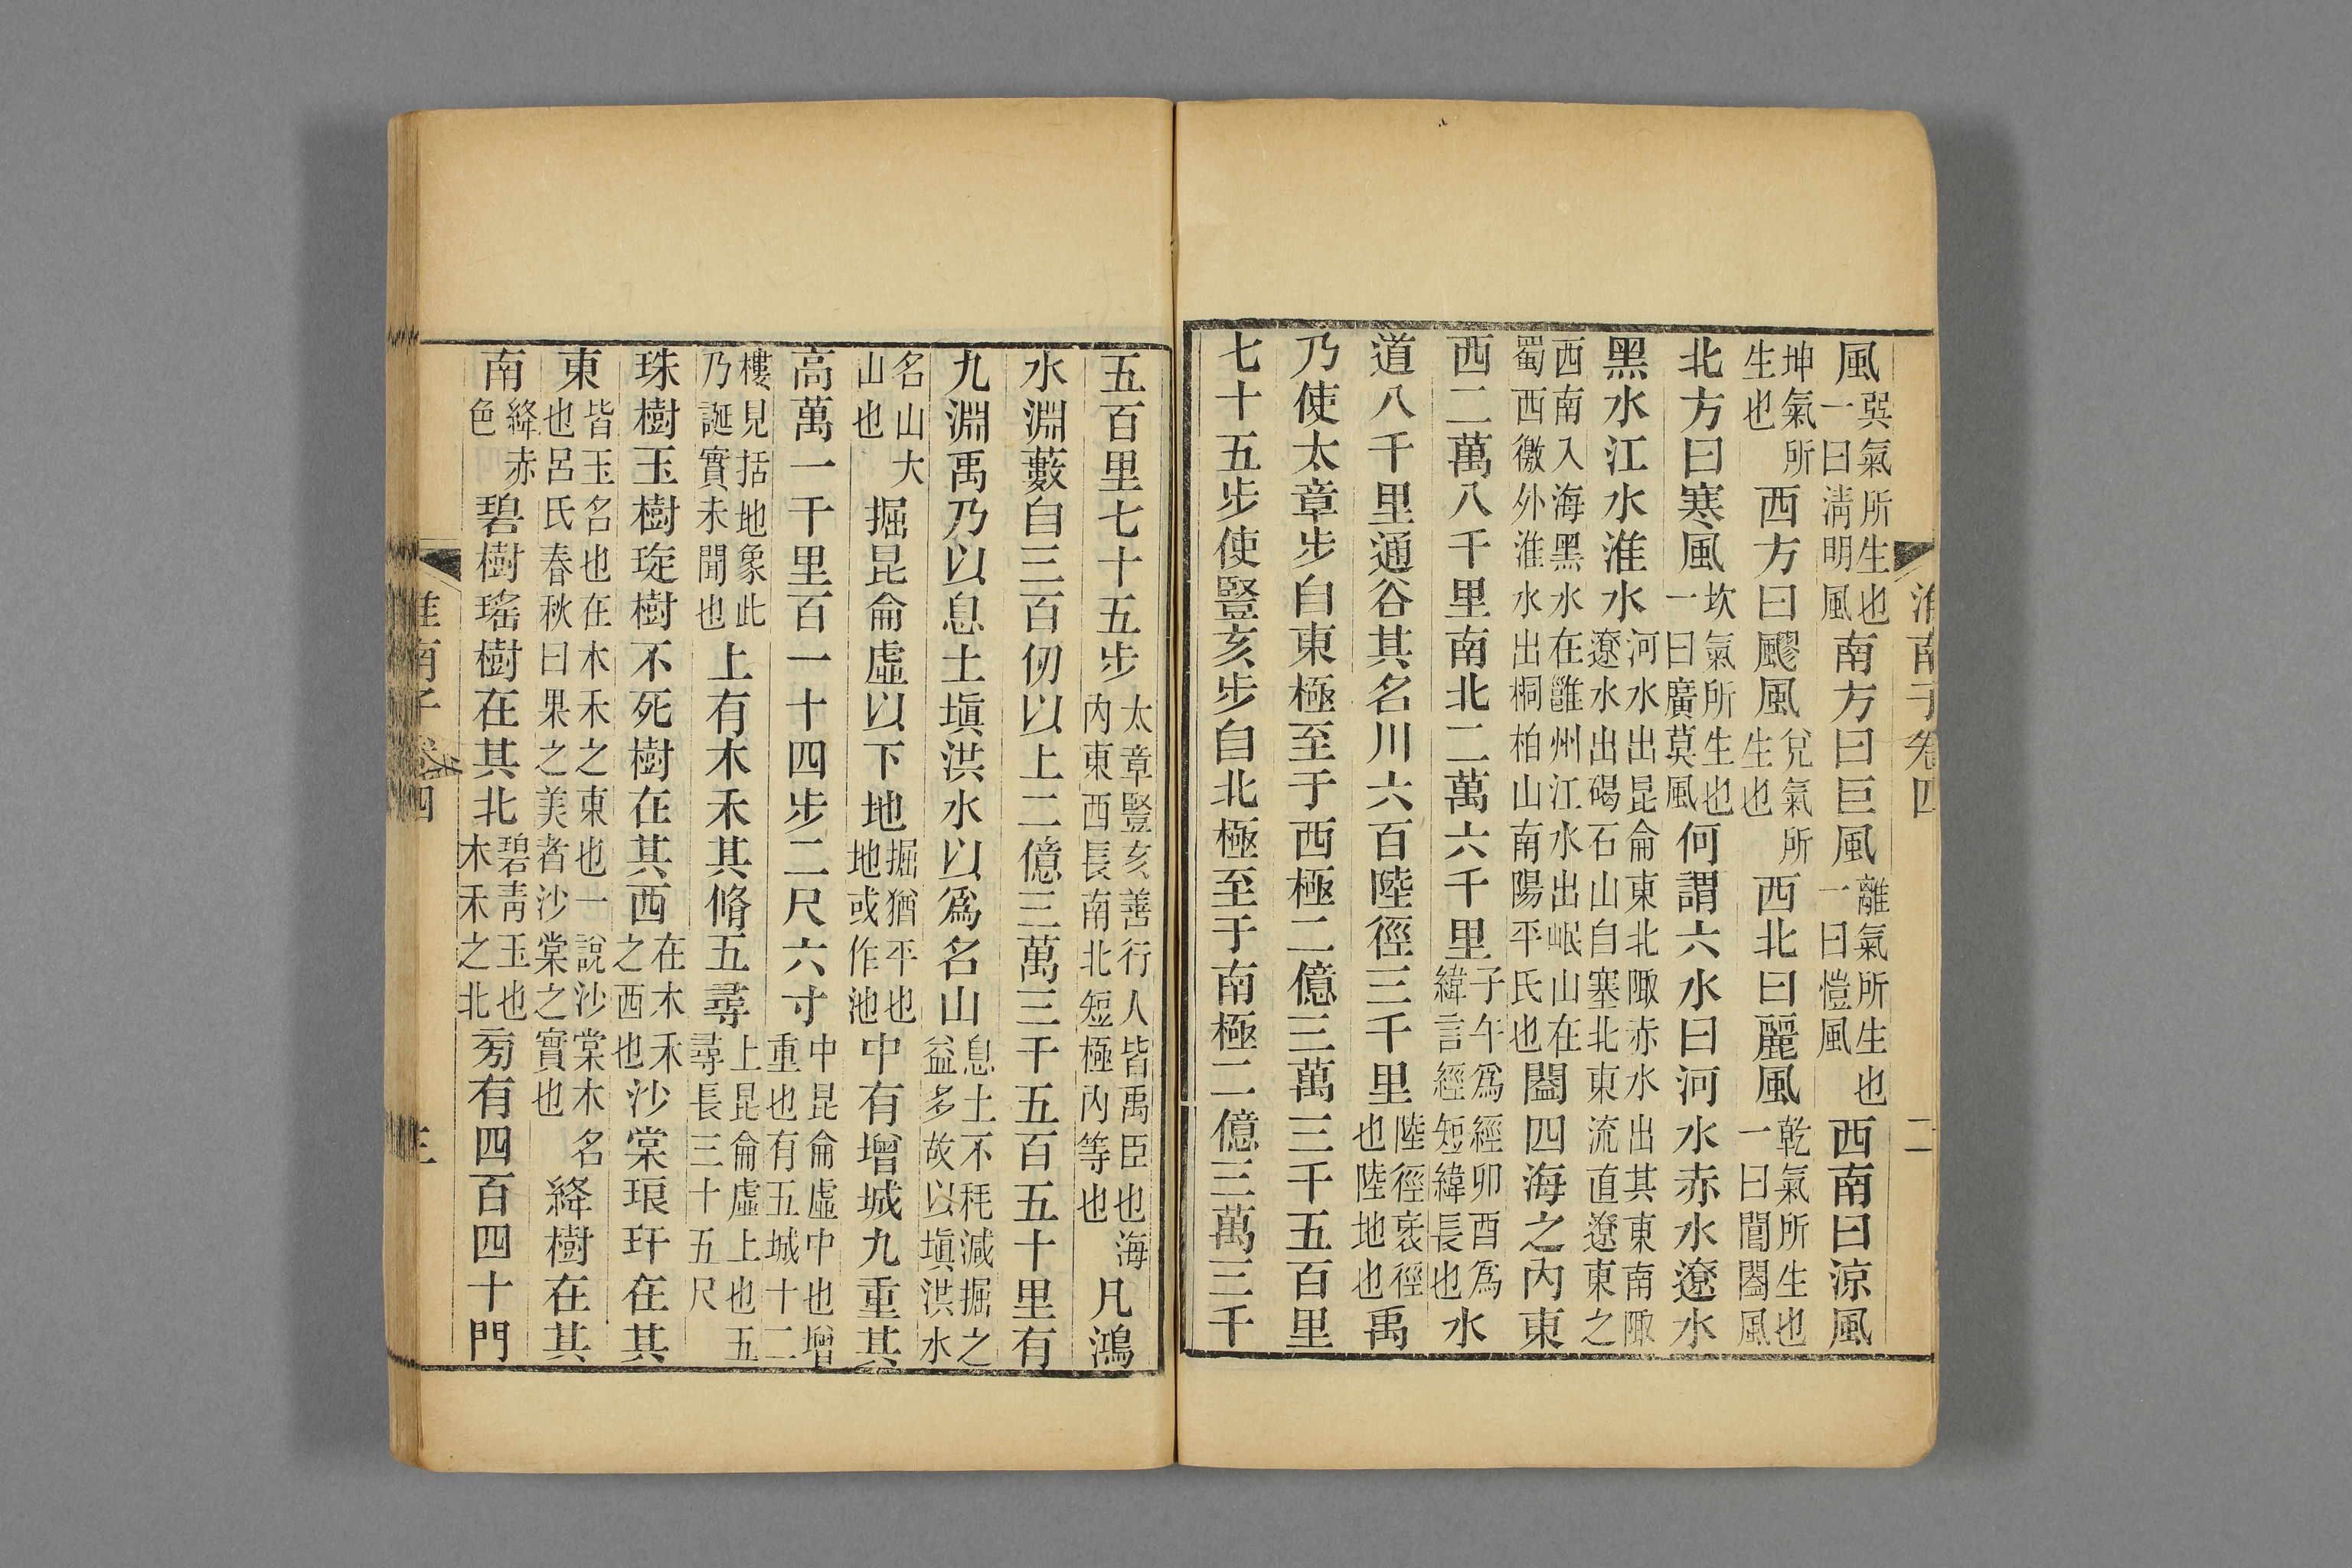 淮南子卷四 二
風巽氣所生也一曰清明風南方曰巨風離氣所生也一曰愷風西南曰涼風
坤氣所生也西方曰飂風兌氣所生也西北曰麗風乾氣所生也一曰閶闔風
北方曰寒風坎氣所生也一曰廣莫風何謂六水曰河水赤水遼水
黑水江水淮水河水出昆侖東北陬赤水出其東南陬遼水出碣石山自塞北東流直遼東之
西南入海黑水在雝州江水出岷山在蜀西徼外淮水出桐柏山南陽平氏也闔四海之內東
西二萬八千里南北二萬六千里子午爲經卯酉爲緯言經短緯長也水
道八千里通谷其名川六百陸徑三千里陸徑衺徑也陸地也禹
乃使太章步自東極至于西極二億三萬三千五百里
七十五步使豎亥步自北極至于南極二億三萬三千
五百里七十五步太章豎亥善行人皆禹臣也海內東西長南北短極內等也凡鴻
水淵藪自三百仞以上二億三萬三千五百五十里有
九淵禹乃以息土塡洪水以爲名山息土不秏減掘之益多故以塡洪水
名山大山也掘昆侖虛以下地掘猶平也地或作池中有增城九重其
高萬一千里百一十四步二尺六寸中昆侖虛中也增重也有五城十二
樓見括地象此乃誕實未聞也上有木禾其脩五尋上昆侖虛上也五尋長三十五尺
珠樹玉樹琁樹不死樹在其西在木禾之西也沙棠琅玕在其
東皆玉名也在木禾之東也一說沙棠木名也呂氏春秋曰果之美者沙棠之實也絳樹在其
南絳赤色碧樹瑤樹在其北碧靑玉也木禾之北㫄有四百四十門
淮南子卷四 三